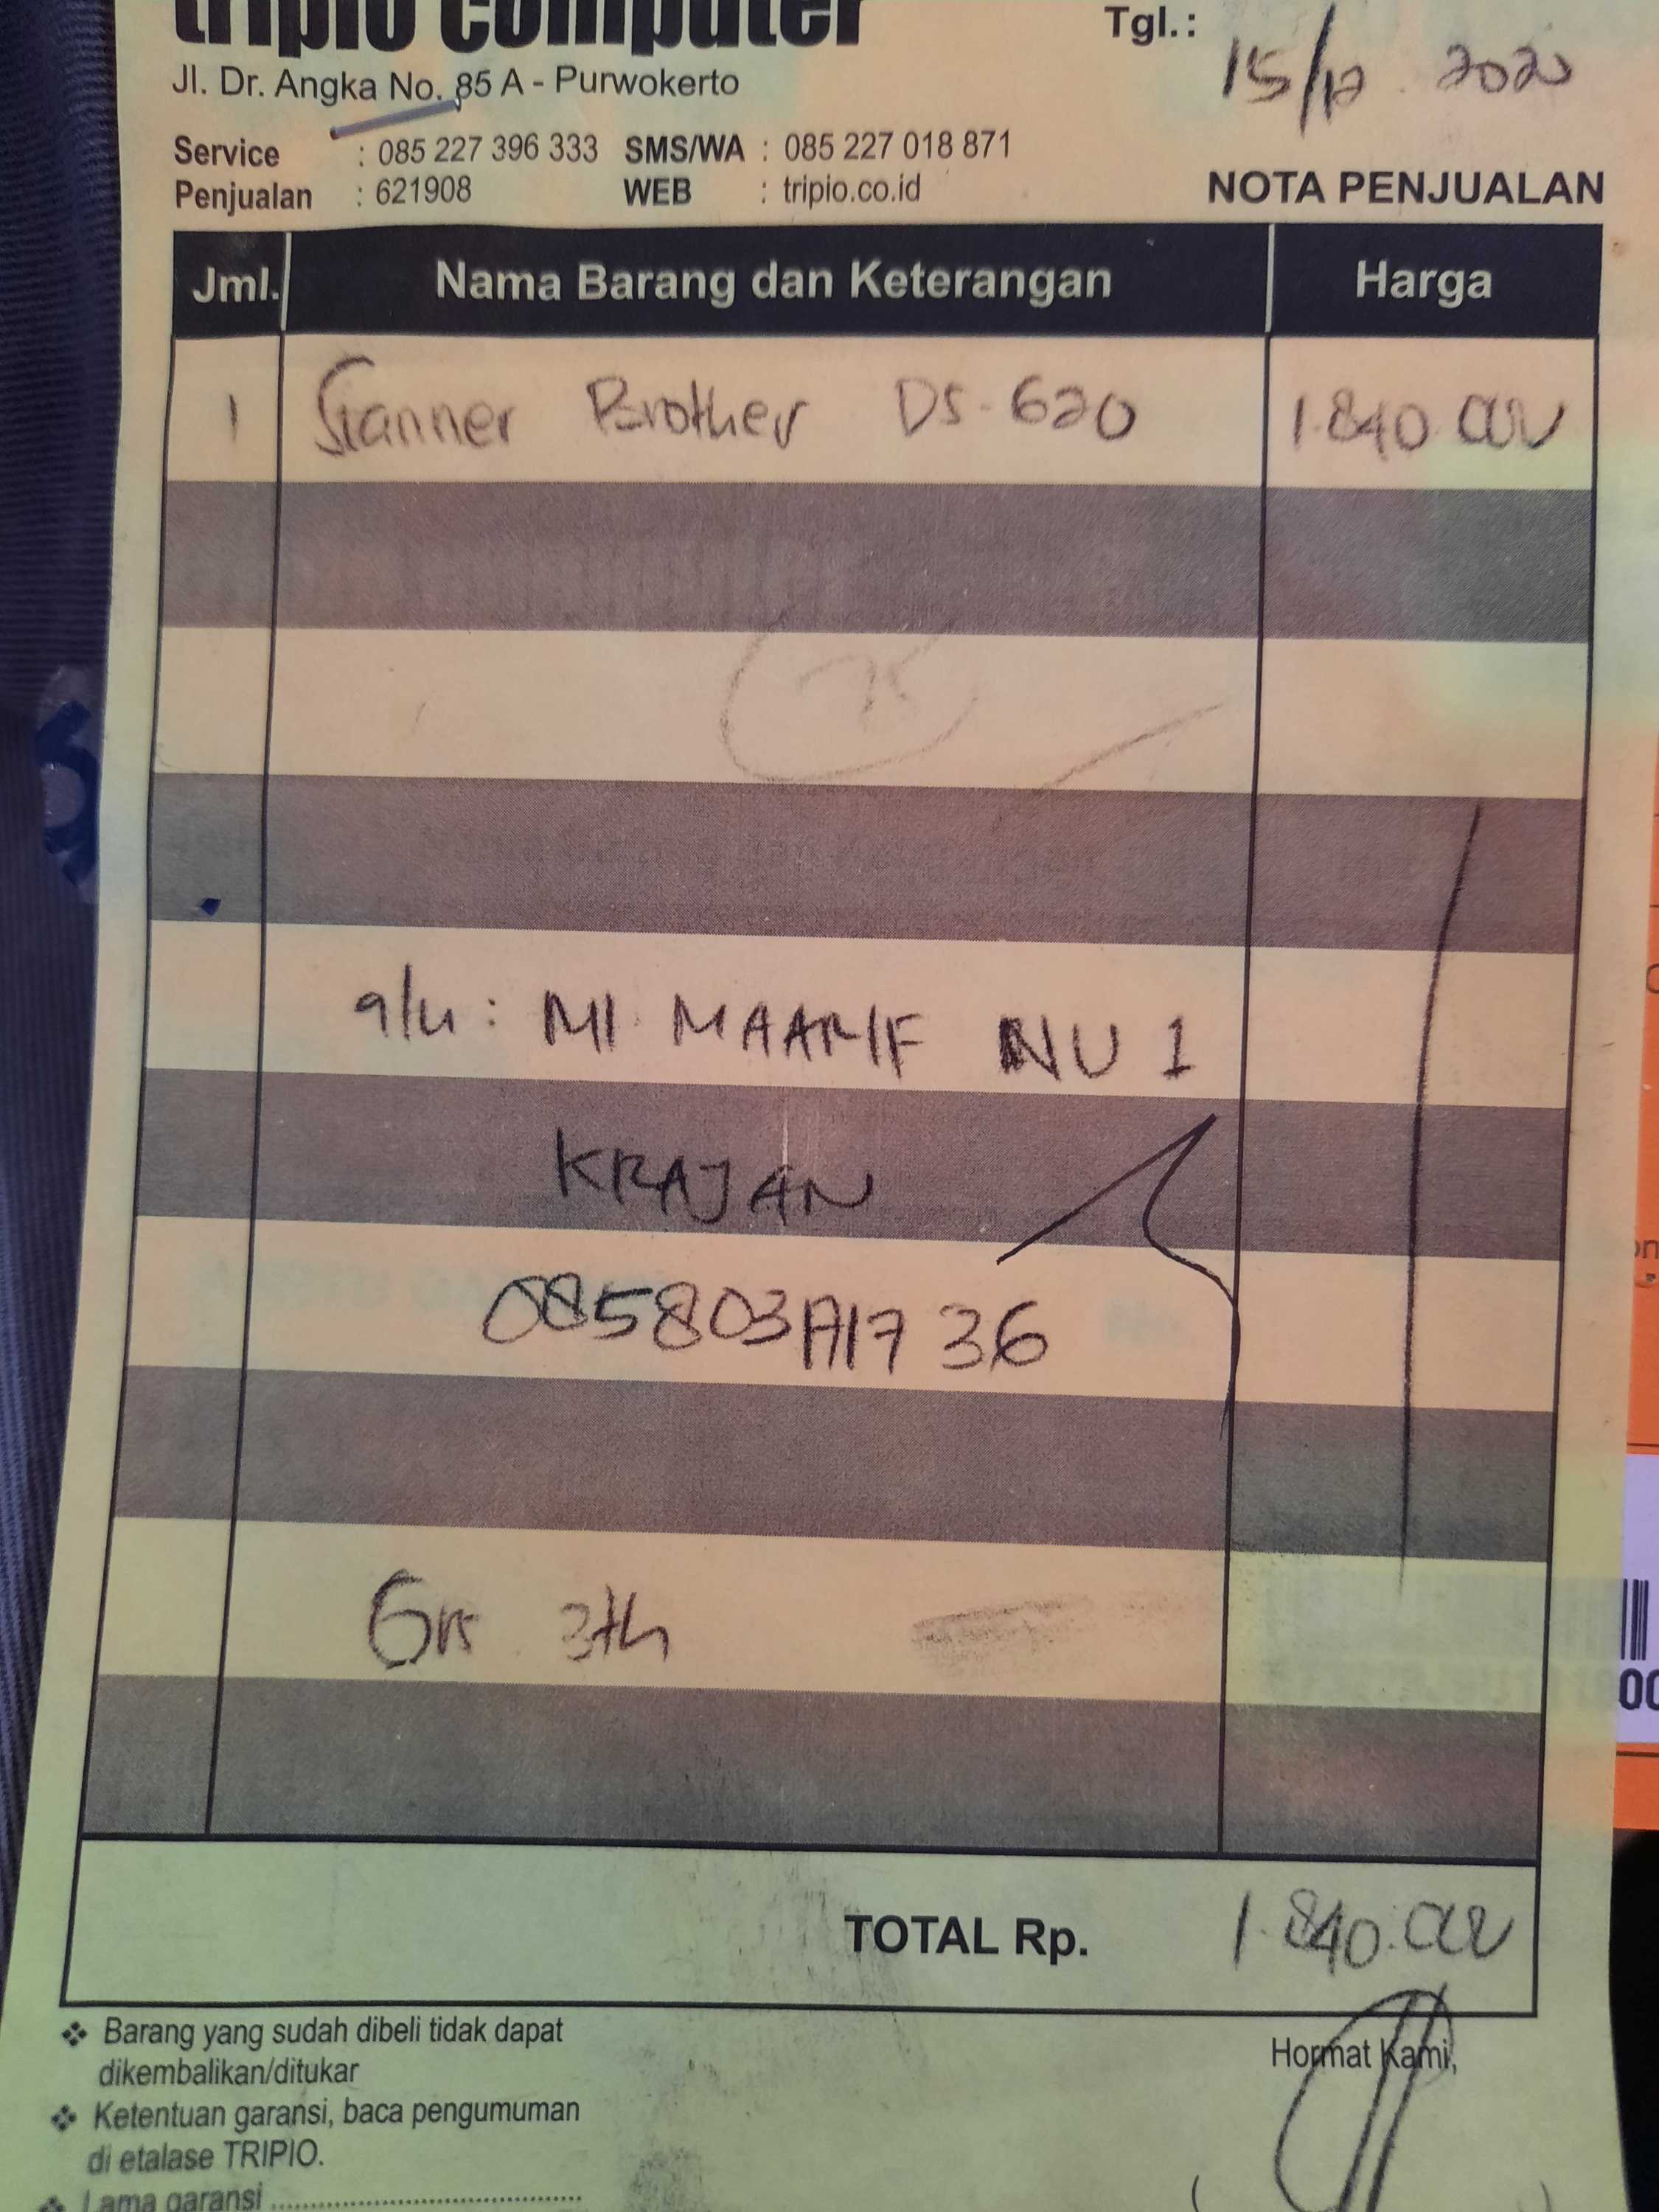 tripio computer
Jl. Dr. Angka No. 85 A - Purwokerto
Tgl.: 15/12 2020
Service : 085 227 396 333 SMS/WA : 085 227 018 871
Penjualan : 621908 WEB : tripio.co.id
NOTA PENJUALAN
Jml. Nama Barang dan Keterangan Harga
1 Scanner Brother DS-620 1.840.000
a/n : MI MAARIF NU 1
KRAJAN
Grs 3th
TOTAL Rp. 1.840.000
❖ Barang yang sudah dibeli tidak dapat
dikembalikan/ditukar
Hormat Kami,
❖ Ketentuan garansi, baca pengumuman
di etalase TRIPIO.
❖ Lama garansi